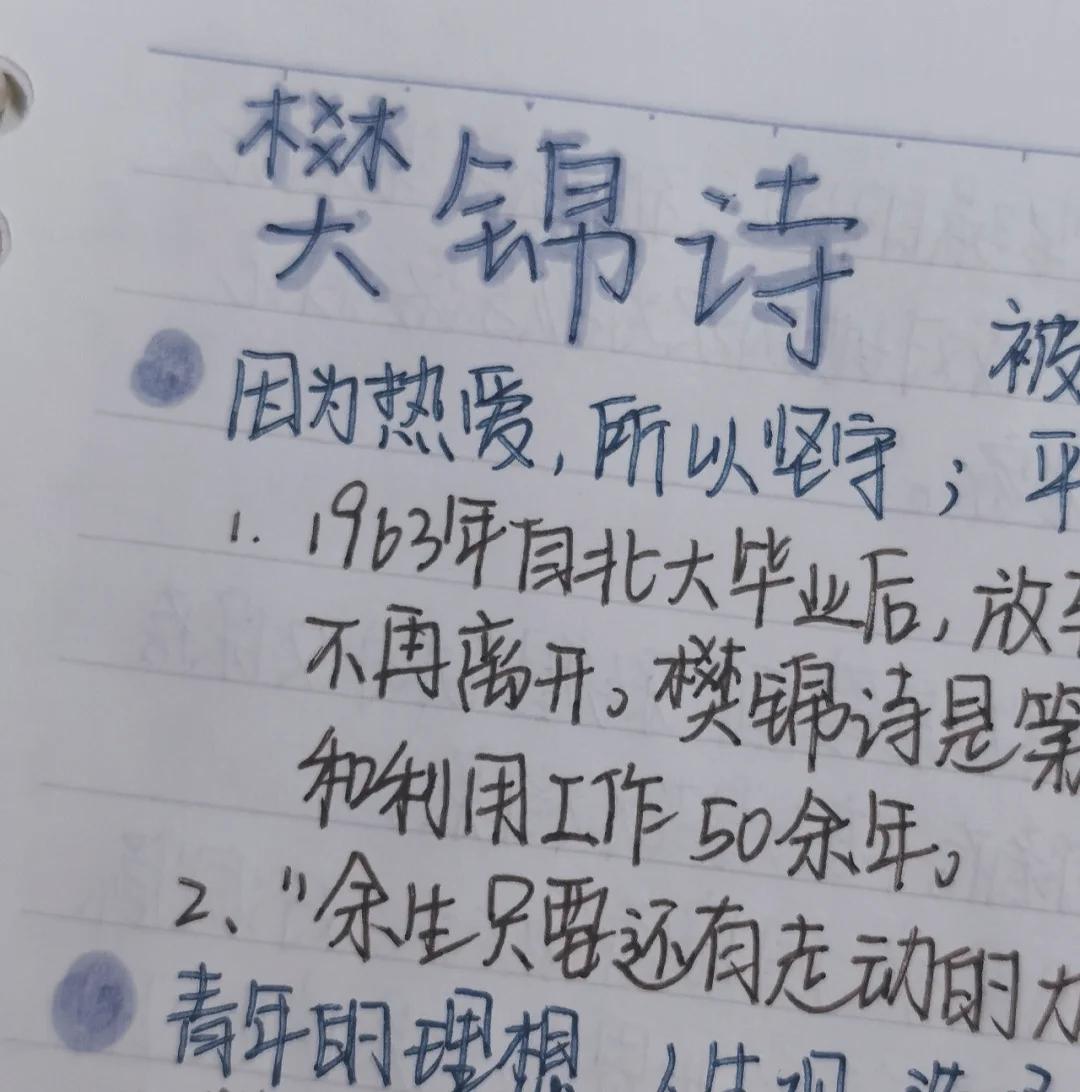 樊锦诗
被
因为热爱，所以坚守；平
1. 1963年自北大毕业后，放弃
不再离开。樊锦诗是第
和利用工作50余年。
2、"余生只要还有走动的力
青年的理想